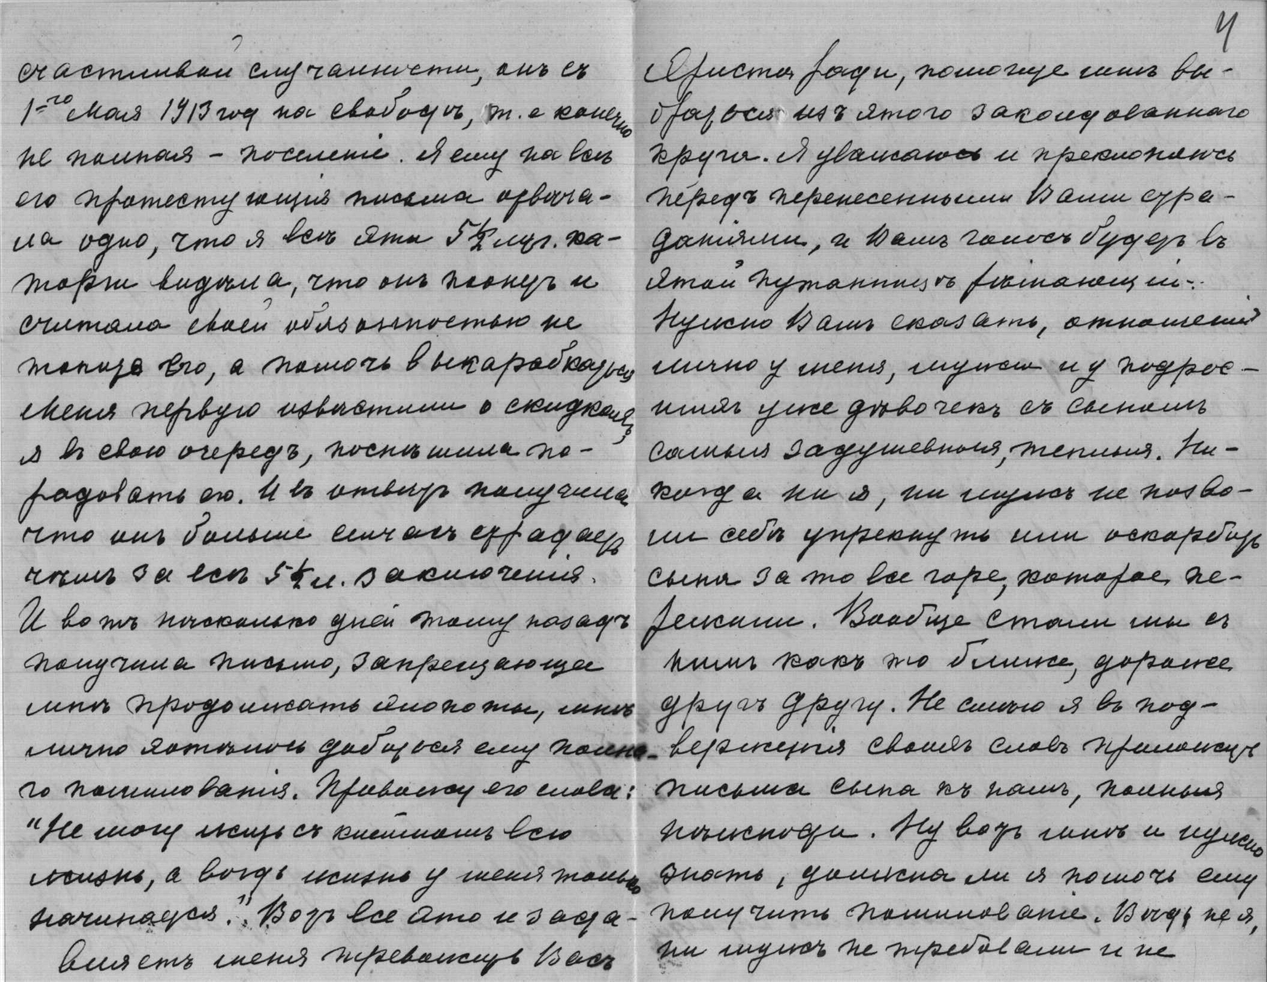 счастливой случайности, онъ съ
1-го Мая 1913 год на свободѣ, т.е конечно
не полная – поселеніе. Я ему на всѣ
его протестующія письма отвѣча-
ла одно, что я всѣ эти 5½ лѣт. ка-
торги видѣла, что онъ тонетъ и
считала своей обязанностью не
топить его, а помочь выкарабкаться
Меня первую извѣстили о скидкахъ,
я въ свою очередь, поспѣшила по-
радовать его. И въ отвѣтъ получила
что онъ больше сейчасъ страдаетъ
чѣмъ за всѣ 5½ л. заключенія.
И вотъ нѣсколько дней тому назадъ
получила письмо, запрещающее
мнѣ продолжать хлопоты, мнѣ
лично хотѣлось добиться ему полна-
го помилованія. Привожу его слова:
"Не могу жить съ клеймомъ всю
жизнь, а вѣдь жизнь у меня только
начинается". Вотъ все это и заста-
вляетъ меня тревожить Васъ
4
Христа ради, помогите намъ вы-
браться изъ этого заколдованнаго
круга. Я уважаю и преклоняюсь
передъ перенесенными Вами стра-
даніями, и Вашъ голосъ будетъ въ
этой путанницѣ рѣшающій.
Нужно Вамъ сказать, отношеній
лично у меня, мужа и у подрос-
шихъ уже дѣвочекъ съ сыномъ
самыя задушевныя, теплыя. Ни-
когда ни я, ни мужъ не позво-
ли себѣ упрекнуть или оскорбить
сына за то все горе, которое пе-
режили. Вообще стали мы съ
нимъ какъ то ближе, дороже
другъ другу. Не смѣю я въ под-
вержденія своихъ словъ приложить
письма сына къ намъ, полныя
нѣжности. Ну вотъ мнѣ и нужно
знать, должна ли я помочь ему
получить помилованіе. Вѣдь не я,
ни мужъ не требовали и не